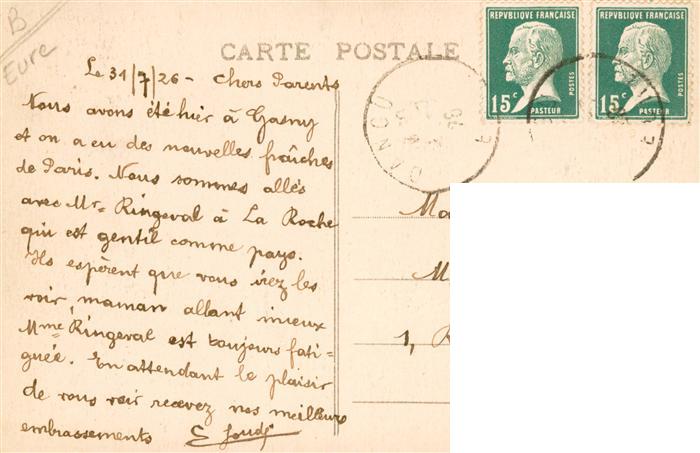 B
Eure
CARTE POSTALE
REPVBLIQUE FRANÇAISE
15c
POSTES
PASTEUR
REPVBLIQUE FRANÇAISE
15c
POSTES
PASTEUR
DANGU
Le 31/7/26 - Chers Parents
Nous avons été hier à Gasny
et on a eu des nouvelles fraîches
de Paris. Nous sommes allés
avec Mr. Ringeval à La Roche
qui est gentil comme pays.
Ils espèrent que vous irez les
voir, maman allant mieux
Mme Ringeval est toujours fati-
guée. En attendant le plaisir
de vous voir recevez nos meilleurs
embrassements
Ma
M
1,